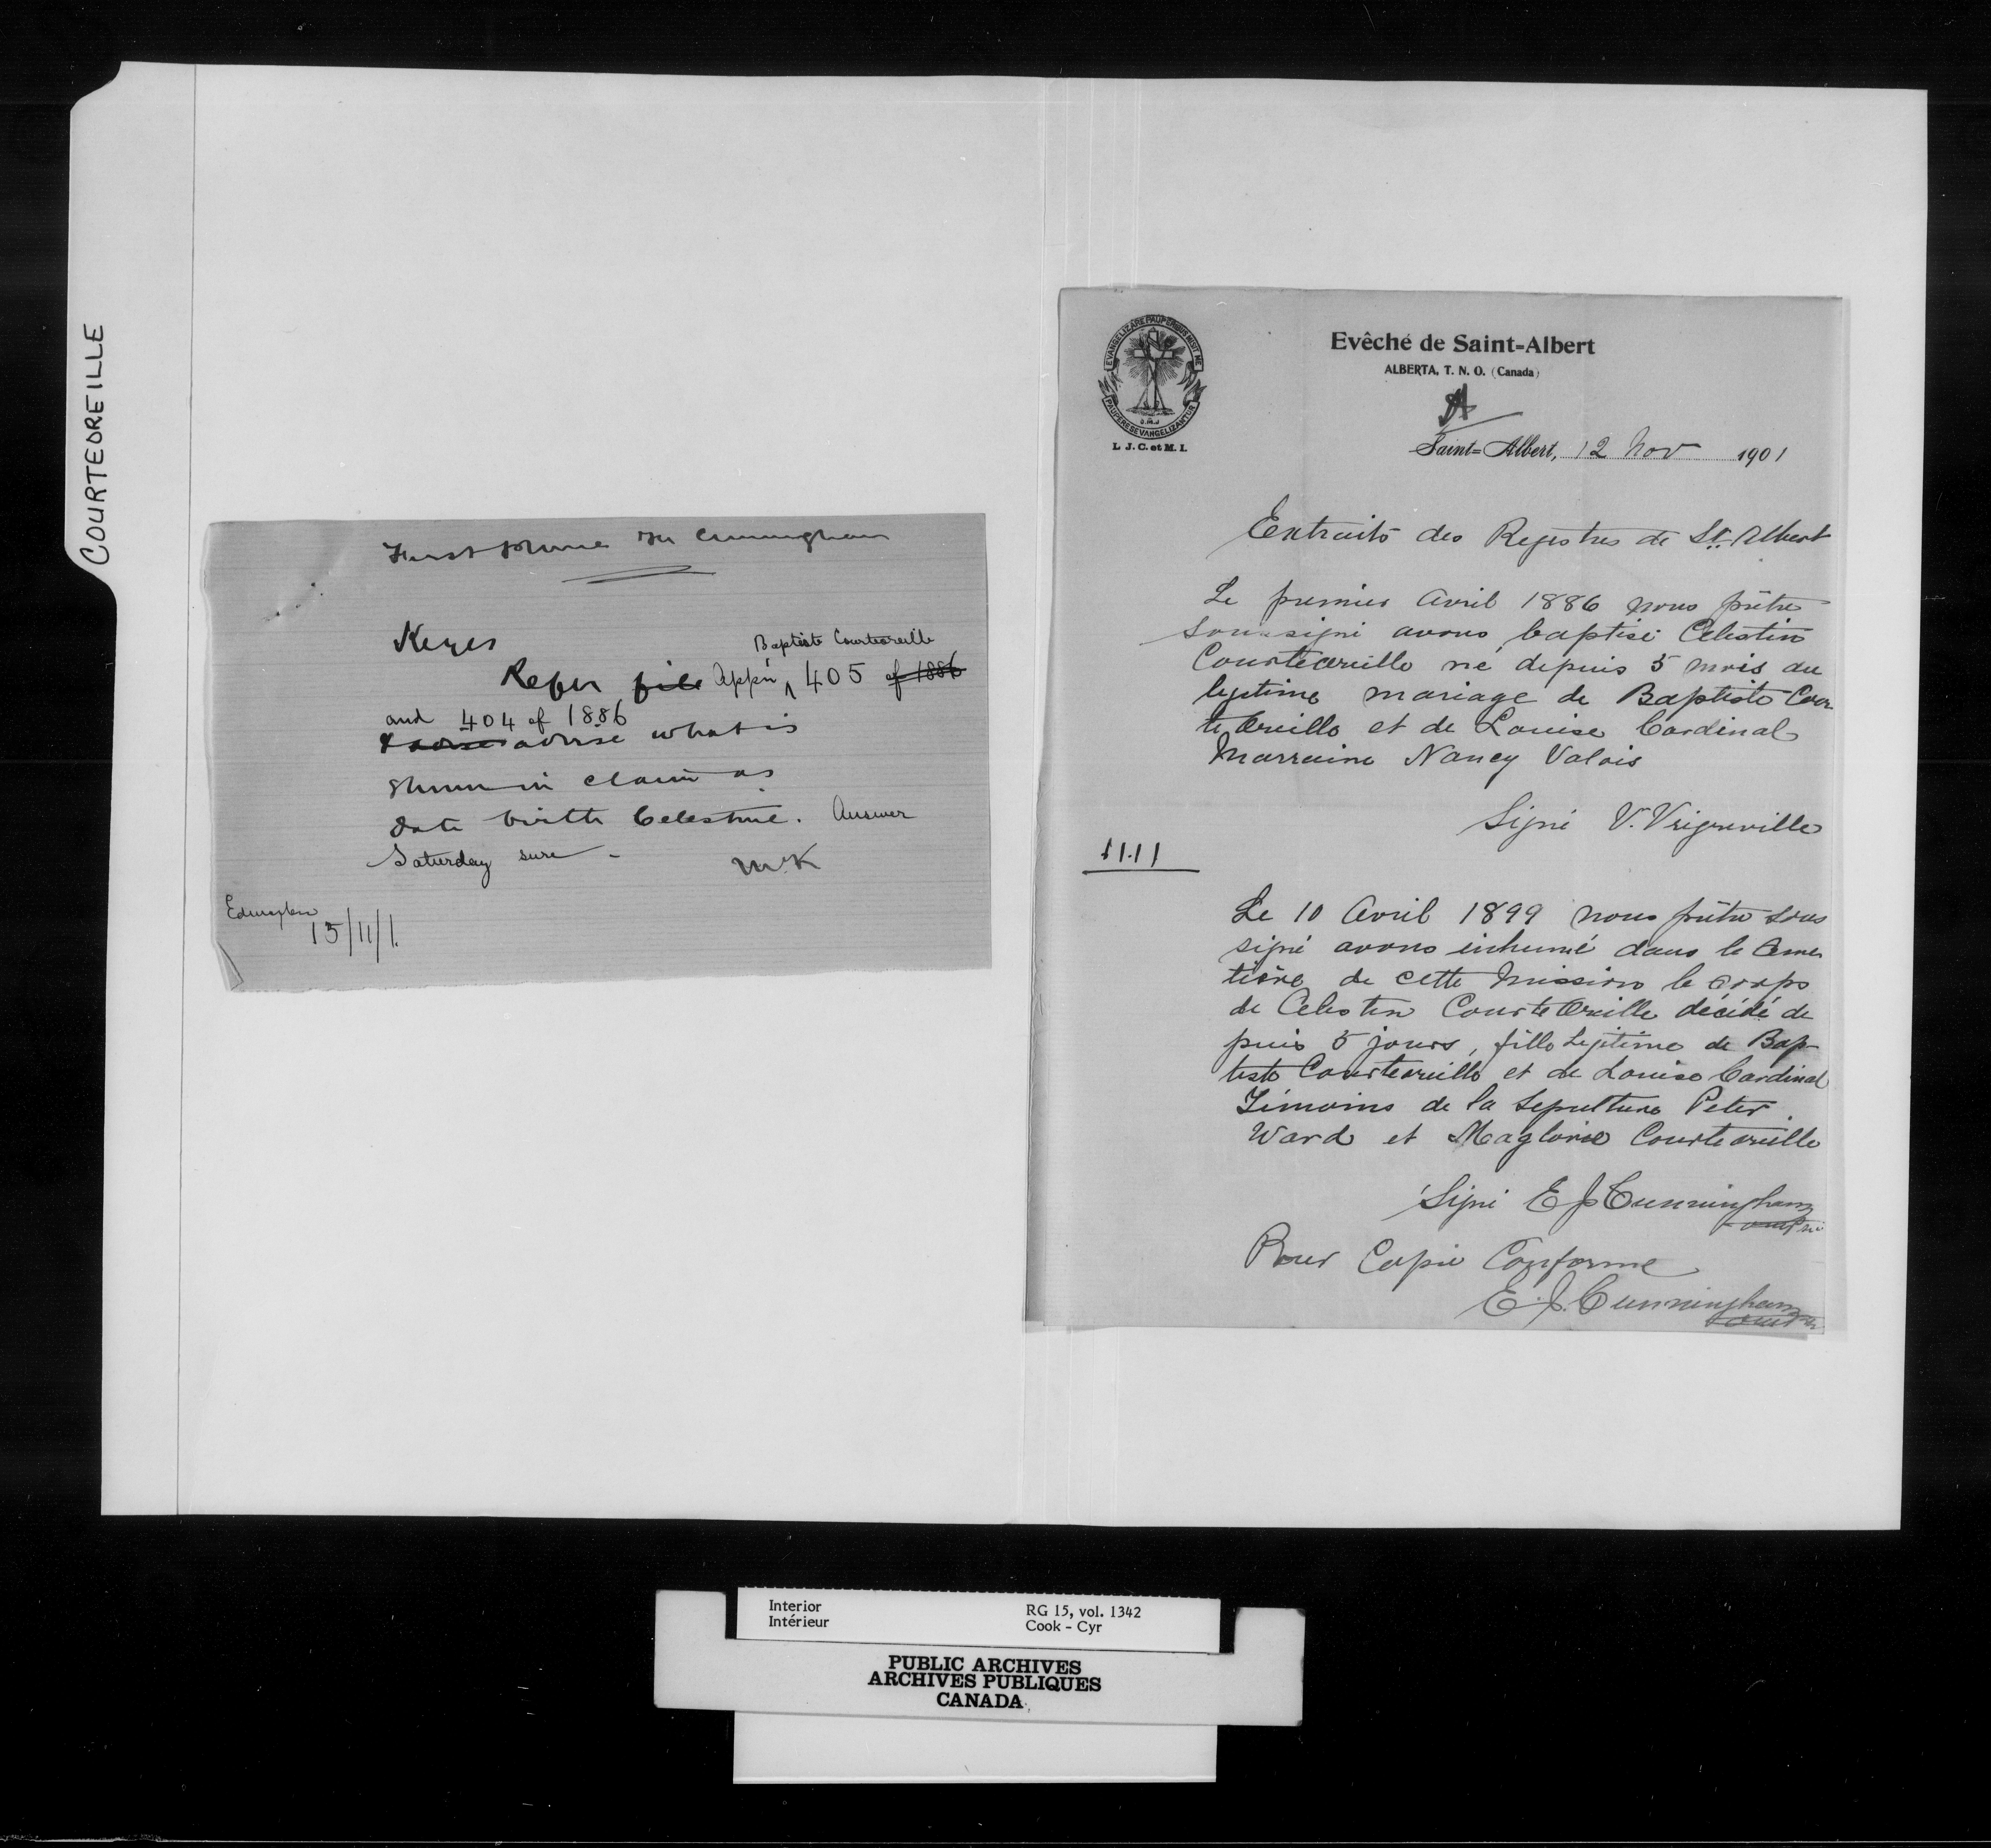 COURTEOREILLE
Mr Cunningham
Keyes
Baptiste Courteoreille
Refer file Appn 405 of 1886
and 404 of 1886
advise what is
shewn in claim as
date birth Celestine. Answer
Saturday sure -
McK
Edmonton
15/11/1.
EVANGELIZARE PAUPERIBUS MISIT ME
PAUPERES EVANGELIZANTUR
O.M.J
L. J. C. et M. I.
Evêché de Saint-Albert
ALBERTA, T. N. O. (Canada)
Saint-Albert, 12 Nov 1901
Extraits des Registres de St Albert
Le premier Avril 1886 nous prêtre
soussigné avons baptisé Celestin
Courteoreille né depuis 5 mois du
legitime mariage de Baptiste Cour
teoreille et de Louise Cardinal
Marraine Nancy Valois
Signé V. Vegreville
11.11
Le 10 Avril 1899 nous prêtre sous
signé avons inhumé dans le Cime
tière de cette Mission le corps
de Celestin Courteoreille décédé de
puis 5 jours, fille Legitime de Bap-
tiste Courteoreille et de Louise Cardinal
Témoins de la Sepulture Peter
Ward et Magloire Courteoreille
Signé E J Cunningham
omi ptre
Pour Copie Conforme
E. J. Cunningham
Interior
Intérieur
RG 15, vol. 1342
Cook - Cyr
PUBLIC ARCHIVES
ARCHIVES PUBLIQUES
CANADA